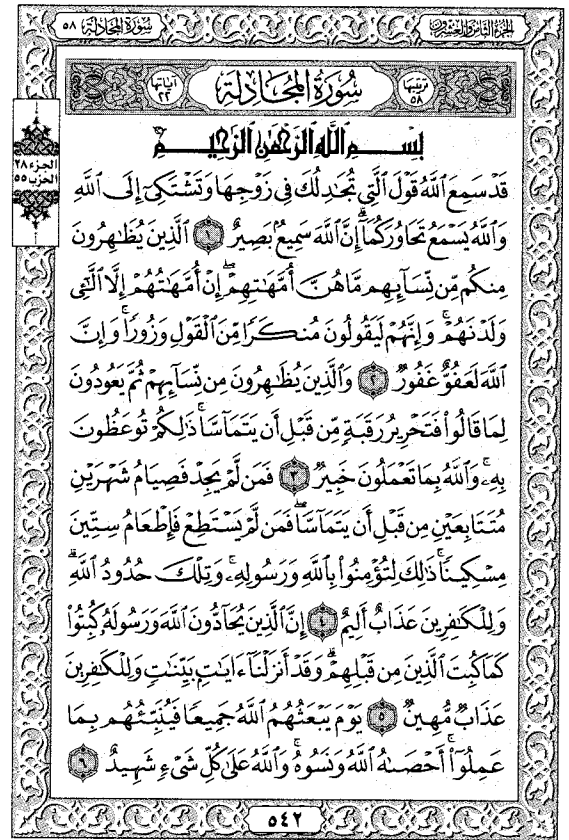 سُورَةُ المُجَادلة ٥٨
الجزء الثامن والعشرون
ترتيبها ٥٨
سُورَةُ المُجَادِلَة
آياتها ٢٢
بِسْمِ اللَّهِ الرَّحْمَٰنِ الرَّحِيمِ
الجزء ٢٨
الحزب ٥٥
قَدْ سَمِعَ ٱللَّهُ قَوْلَ ٱلَّتِي تُجَٰدِلُكَ فِي زَوْجِهَا وَتَشْتَكِيٓ إِلَى ٱللَّهِ
وَٱللَّهُ يَسْمَعُ تَحَاوُرَكُمَآۚ إِنَّ ٱللَّهَ سَمِيعُۢ بَصِيرٌ ١ ٱلَّذِينَ يُظَٰهِرُونَ
مِنكُم مِّن نِّسَآئِهِم مَّا هُنَّ أُمَّهَٰتِهِمْۖ إِنْ أُمَّهَٰتُهُمْ إِلَّا ٱلَّٰٓـِٔي
وَلَدْنَهُمْۚ وَإِنَّهُمْ لَيَقُولُونَ مُنكَرًا مِّنَ ٱلْقَوْلِ وَزُورًاۚ وَإِنَّ
ٱللَّهَ لَعَفُوٌّ غَفُورٌ ٢ وَٱلَّذِينَ يُظَٰهِرُونَ مِن نِّسَآئِهِمْ ثُمَّ يَعُودُونَ
لِمَا قَالُواْ فَتَحْرِيرُ رَقَبَةٍ مِّن قَبْلِ أَن يَتَمَآسَّاۚ ذَٰلِكُمْ تُوعَظُونَ
بِهِۦۚ وَٱللَّهُ بِمَا تَعْمَلُونَ خَبِيرٌ ٣ فَمَن لَّمْ يَجِدْ فَصِيَامُ شَهْرَيْنِ
مُتَتَابِعَيْنِ مِن قَبْلِ أَن يَتَمَآسَّاۖ فَمَن لَّمْ يَسْتَطِعْ فَإِطْعَامُ سِتِّينَ
مِسْكِينًاۚ ذَٰلِكَ لِتُؤْمِنُواْ بِٱللَّهِ وَرَسُولِهِۦۚ وَتِلْكَ حُدُودُ ٱللَّهِۗ
وَلِلْكَٰفِرِينَ عَذَابٌ أَلِيمٌ ٤ إِنَّ ٱلَّذِينَ يُحَآدُّونَ ٱللَّهَ وَرَسُولَهُۥ كُبِتُواْ
كَمَا كُبِتَ ٱلَّذِينَ مِن قَبْلِهِمْۚ وَقَدْ أَنزَلْنَآ ءَايَٰتٍۭ بَيِّنَٰتٍۚ وَلِلْكَٰفِرِينَ
عَذَابٌ مُّهِينٌ ٥ يَوْمَ يَبْعَثُهُمُ ٱللَّهُ جَمِيعًا فَيُنَبِّئُهُم بِمَا
عَمِلُوٓاْۚ أَحْصَىٰهُ ٱللَّهُ وَنَسُوهُۚ وَٱللَّهُ عَلَىٰ كُلِّ شَيْءٍ شَهِيدٌ ٦
٥٤٢